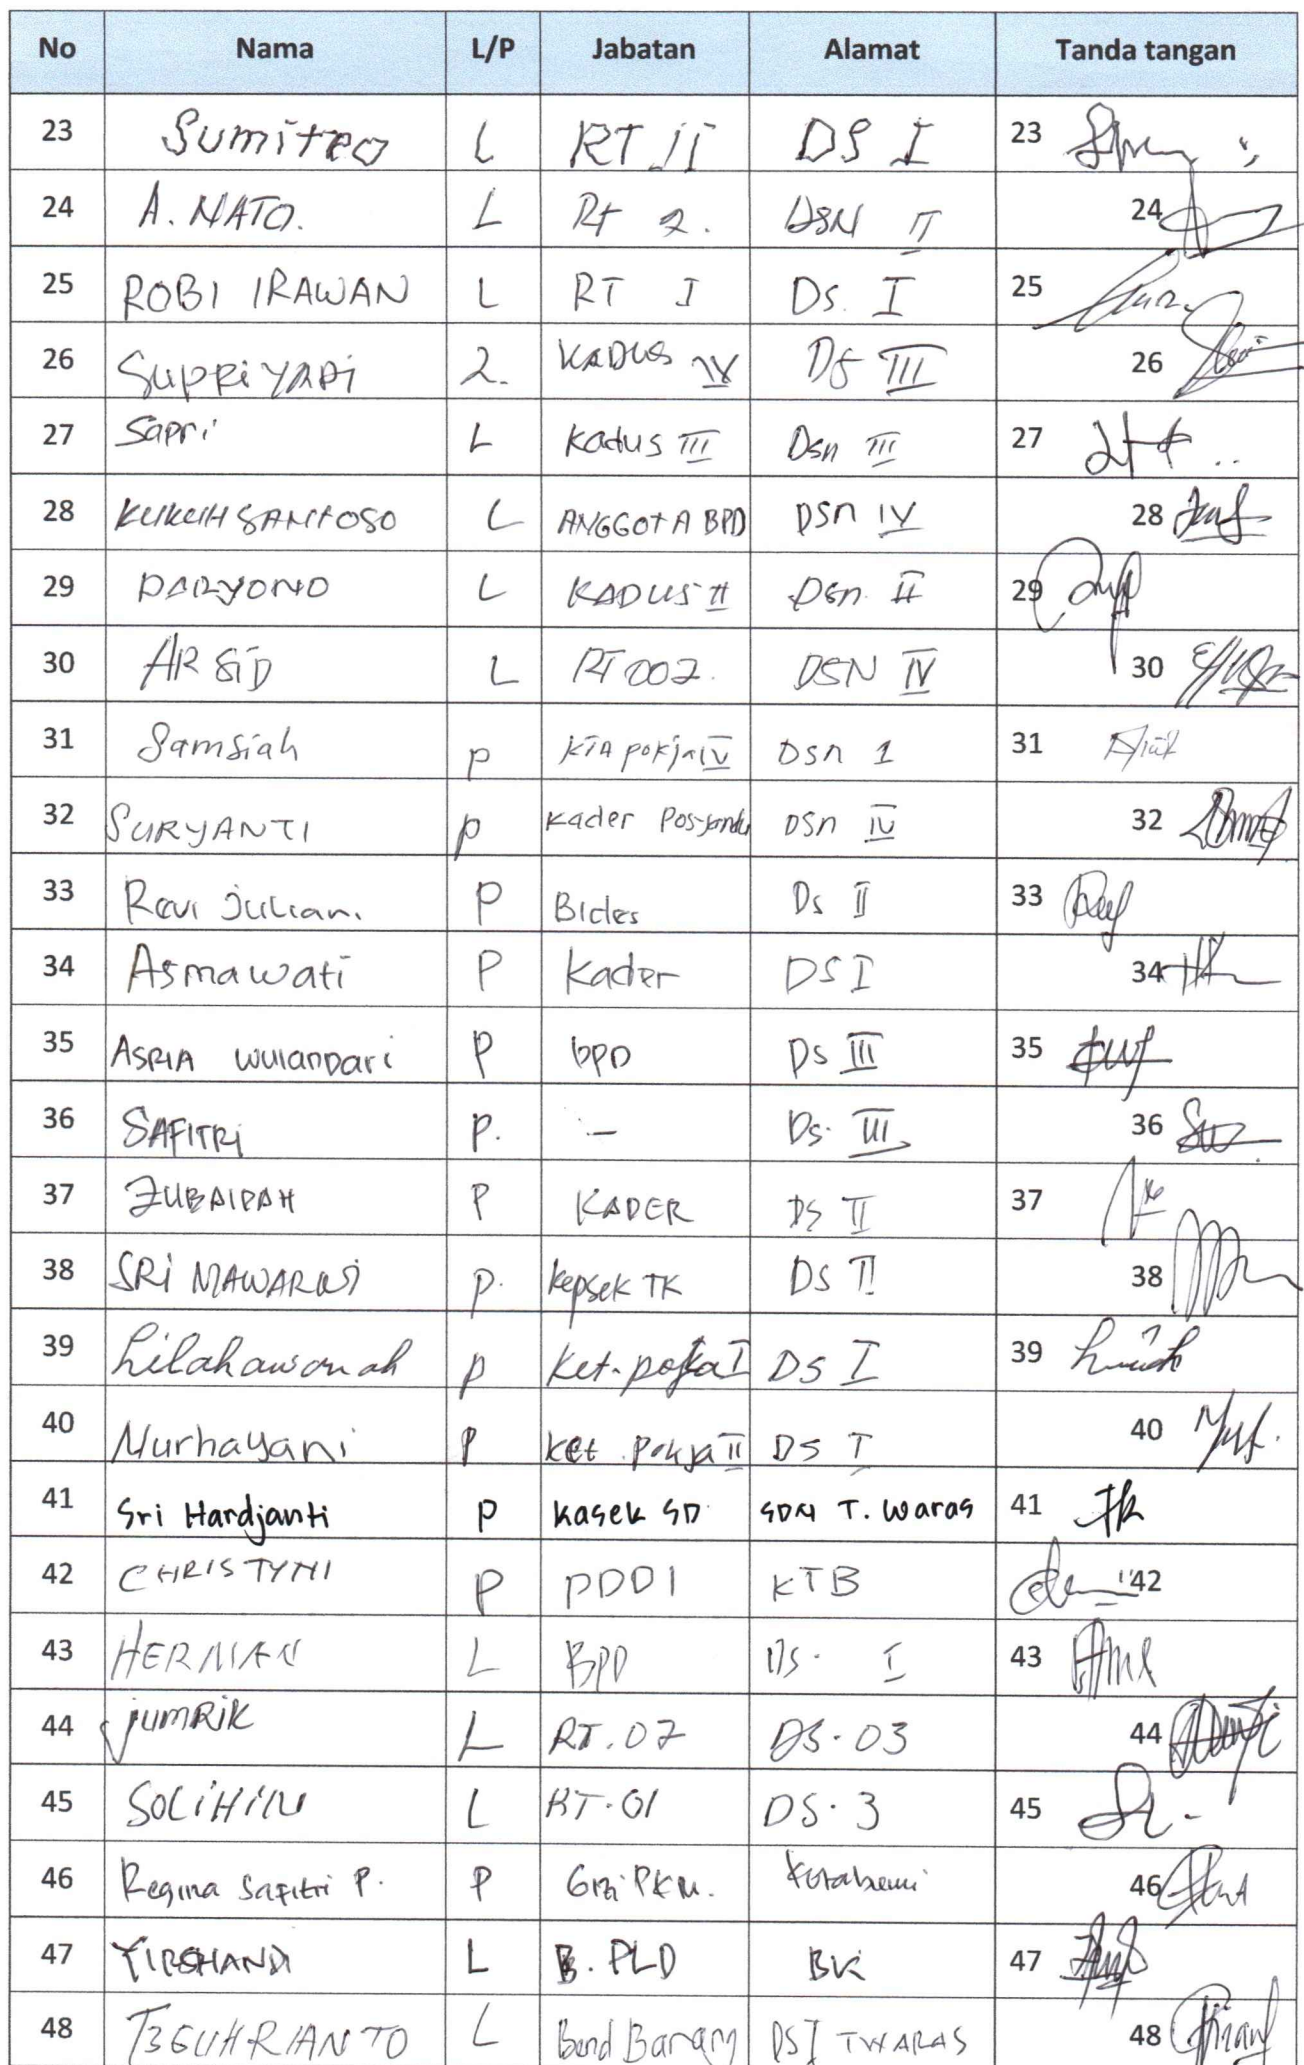 No Nama L/P Jabatan Alamat Tanda tangan
23 Sumitro L RT II DS I 23
24 A. NATO. L Rt 2. DSN II 24
25 ROBI IRAWAN L RT I Ds. I 25
26 SuppRiYADi 2. KADUS IV Ds III 26
27 Sapri L Kadus III Dsn III 27
28 KUKUH SANTOSO L ANGGOTA BPD DSn IV 28
29 DARYONO L KADUS II Dsn. II 29
30 ARSiD L RT 002. DSN IV 30
31 Samsiah P KTA pokja IV Dsn 1 31
32 SURYANTI P Kader Posyandu Dsn IV 32
33 Revi Juliani P Bides Ds II 33
34 Asmawati P Kader DS I 34
35 ASRIA wulanDari P bPD Ds III 35
36 SAFITRi P. - Ds. III 36
37 ZUBAIDAH P KADER DS II 37
38 SRi MAWARNi P. kepsek TK Ds II 38
39 Lilahawanah P Ket. pokja I DS I 39
40 Nurhayani P ket. Pokja II DS I 40
41 Sri Hardjanti P Kasek SD SDN T. Waras 41
42 CHRISTYNI P PDDI KTB 42
43 HERMAN L BPD Ds. I 43
44 jUMRiK L RT.02 DS.03 44
45 SOLiHiN L RT.01 DS.3 45
46 Regina Safitri P. P Gizi PKM. Kotabumi 46
47 L B. PLD BK 47
48 TEGUH RIANTO L Bend Barang DS I TWARAS 48